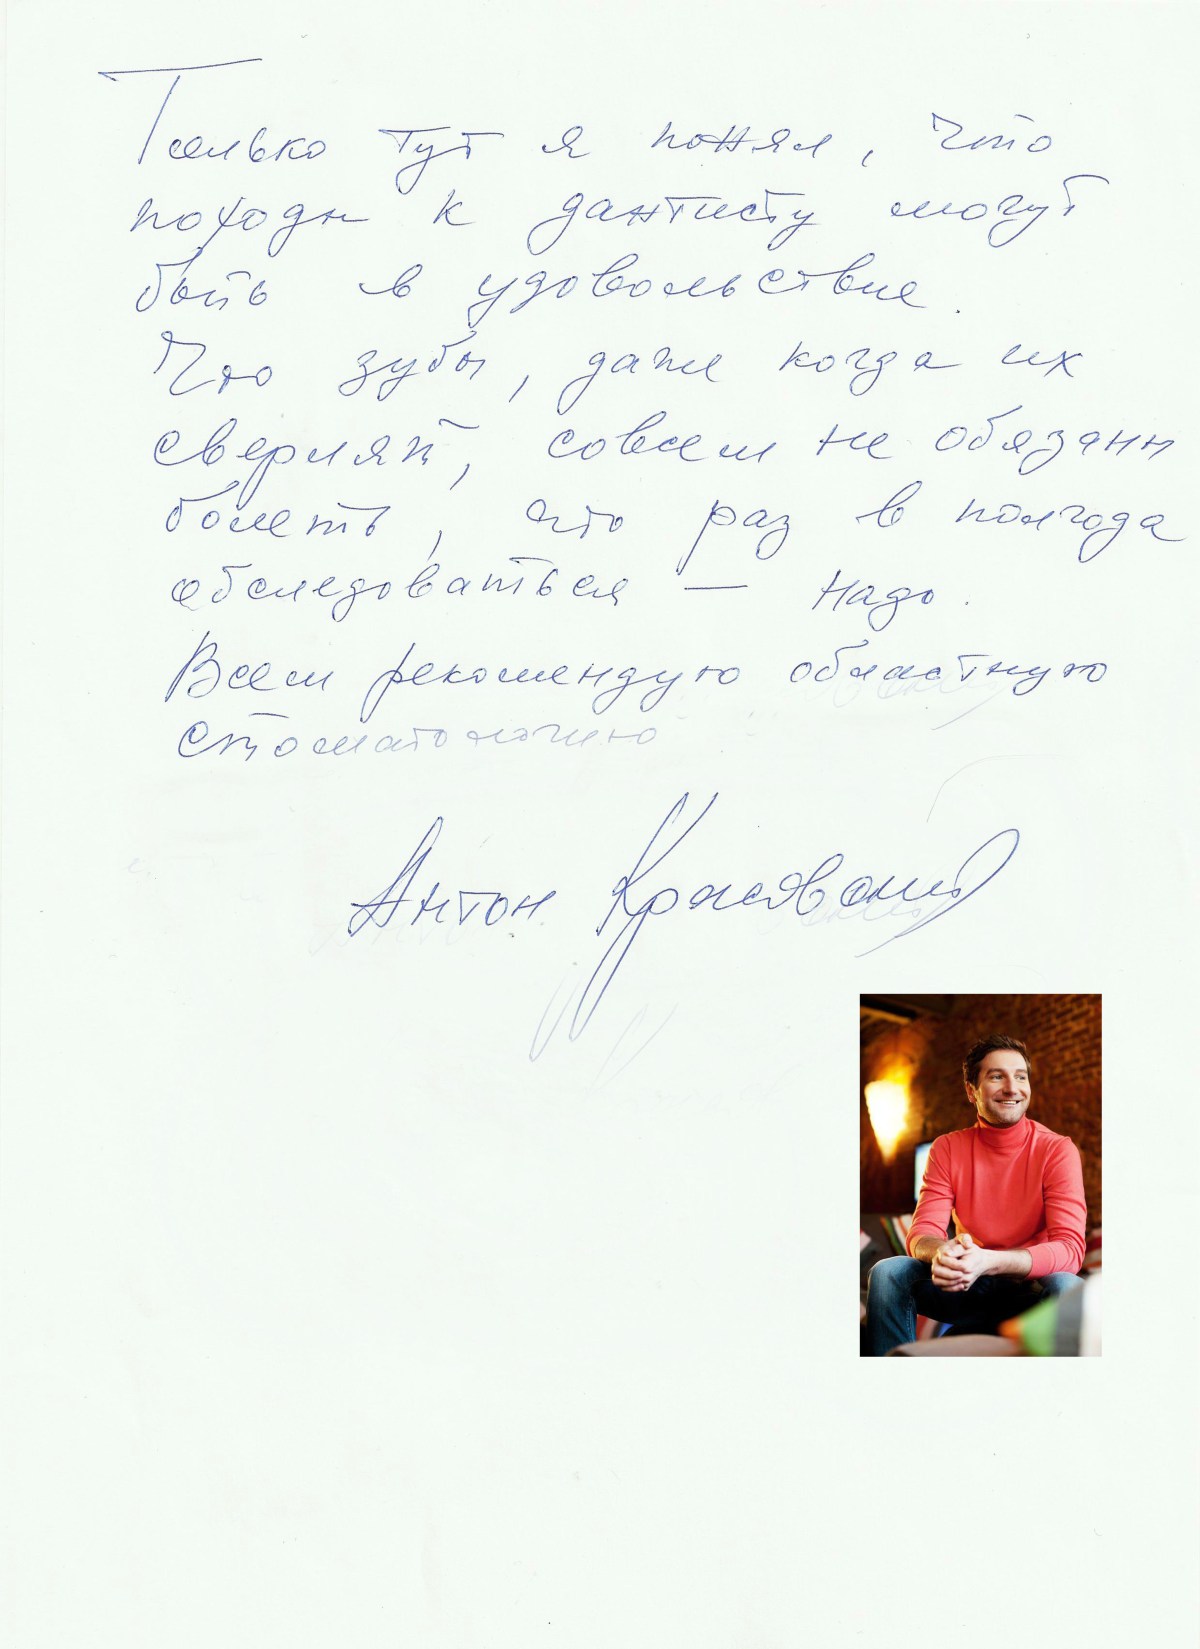 Только тут я понял, что
походы к дантисту могут
быть в удовольствие.
Что зубы, даже когда их
сверлят, совсем не обязаны
болеть, что раз в полгода
обследоваться — надо.
Всем рекомендую областную
стоматологию
Антон Красовский